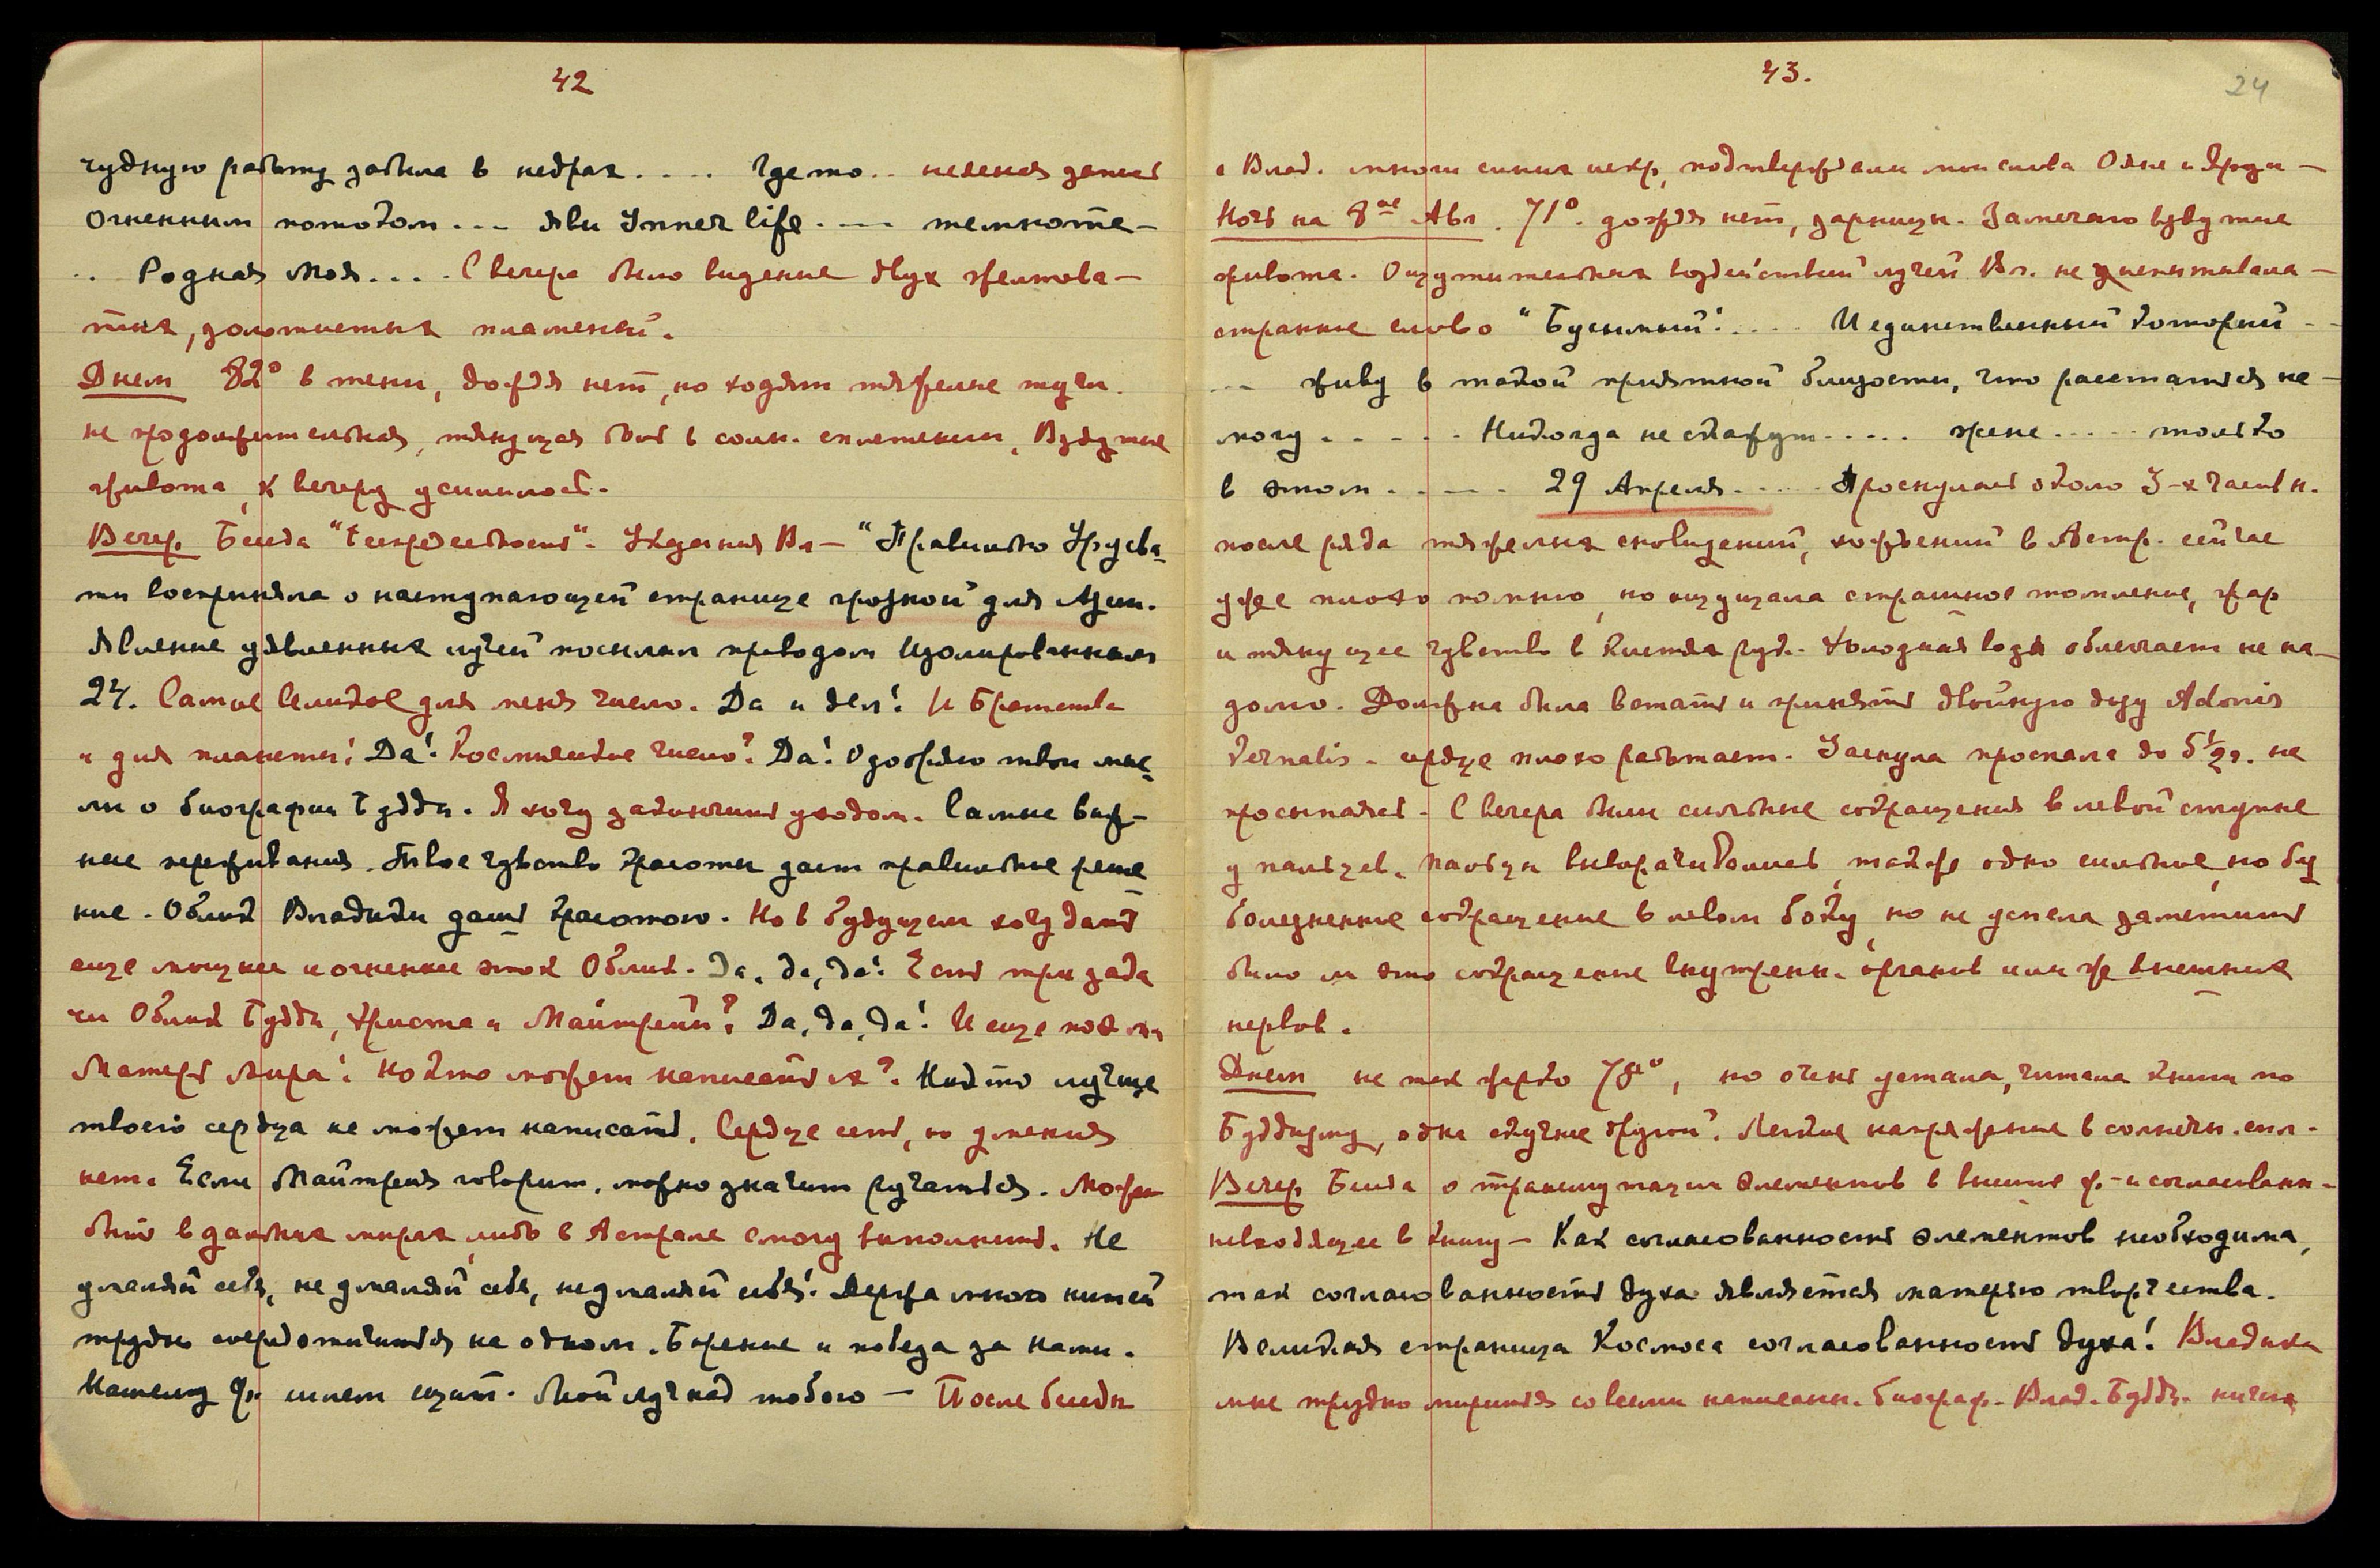 42
чудную работу забыла в недрах .... где то .. неясная запись
огненным потоком ... яви Inner life .--- темноте -
.. Родная моя.... С вечера было видение двух желтова-
тых, золотистых пламеней.
Днем 82° в тени, дождя нет, но ходят тяжелые тучи.
не продолжительная, тянущая боль в солн. сплетении, Вздутие
живота, к вечеру усилилось.
Вечер. Беседа "Беспредельность". Указания Вл — "Правильно Урусва-
ти восприняла о наступающей странице грозной для Азии.
Явление уявленных лучей посылал проводом изолированным
24. Самое великое для меня число. Да и дел! И Братства
и для планеты! Да! Космическое число? Да! Одобряю твои мыс-
ли о биографии Будды. Я хочу закончить уходом. Самые важ-
ные переживания. Твое чувство красоты дает правильное реше-
ние. Облик Владыки дашь красотою. Но в будущем хочу дать
еще мощнее и огненнее этот Облик. Да, да, да! Есть три зада
чи Облик Будды, Христа и Майтрейи? Да, да, да! И еще
Матерь Мира! Но кто может написать их? Никто лучше
твоего сердца не может написать. Сердце есть, но умения
нет. Если Майтрейя говорит, можно значит ручаться. Может
быть в дальних мирах, либо в Астрале смогу выполнить. Не
умаляй себя, не умаляй себя, не умаляй себя! Держа много нитей
трудно сосредоточиться на одном. Борение и победа за нами.
Нашему щит. Мой луч над тобою — После беседы
43.
24
с Влад. много синих искр, подтверждали мои слова Ояне и
Ночь на 8ое Авг. 71°. дождя нет, зарницы. Замечаю вздутие
живота. Ощутительных воздействий лучей Вл. не испытывала -
странное слово " .... И единственный который --
--- живу в такой приятной близости, что расстаться не -
могу . - - - - Никогда не скажут ..... жене .... только
в этом . - --- . 29 Апреля. .... Проснулась около 3-х часов н.
после ряда тяжелых сновидений, хождений в Астр. сейчас
уже плохо помню, но ощущала страшное томление, жар
и тянущее чувство в кистях рук. Холодная вода облегчает не на-
долго. Должна была встать и принять двойную дозу Adonis
Vernalis - сердце плохо работает. Заснула проспала до 5½ч. не
просыпаясь. С вечера были сильные сокращения в левой ступне
у пальцев. Пальцы выворачивались, также одно сильное, но без
болезненное сокращение в левом боку, но не успела заметить
было ли это сокращение внутренн. органов или же внешних
нервов.
Днем не так жарко 78°, но очень устала, читала книги по
Буддизму, одна скучнее другой. Легкое напряжение в солнечн. спл.
Вечер. Беседа о трансмутации элементов в высшие ф. и согласованн.
невходящее в книгу — Как согласованность элементов необходима,
так согласованность духа является матерью творчества.
Великая страница Космоса согласованность духа! Владыка
мне трудно мириться со всеми написанн. биограф. Влад. Будды.